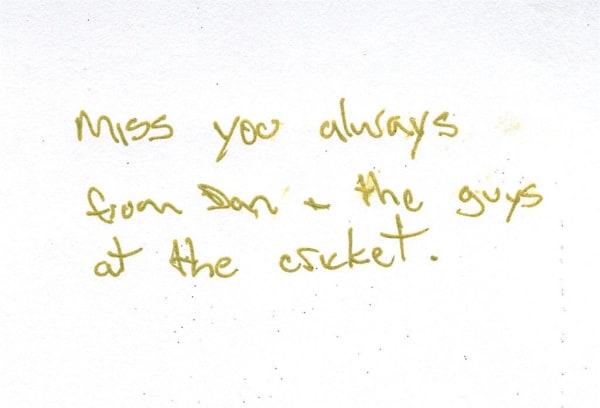 Miss you always
from Dan + the guys
at the cricket.